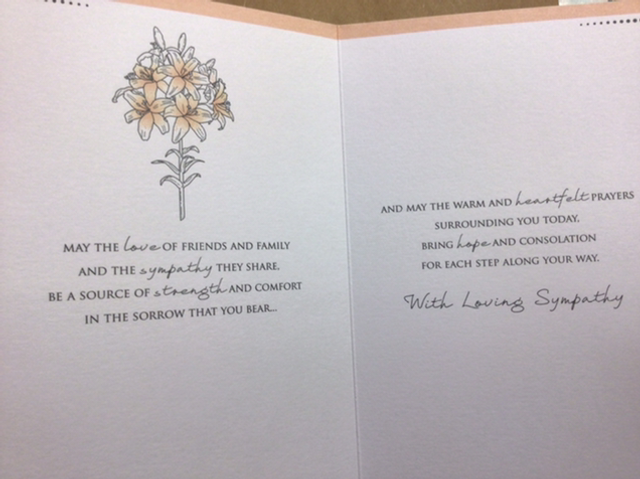 MAY THE love OF FRIENDS AND FAMILY
AND THE sympathy THEY SHARE,
BE A SOURCE OF strength AND COMFORT
IN THE SORROW THAT YOU BEAR...
AND MAY THE WARM AND heartfelt PRAYERS
SURROUNDING YOU TODAY,
BRING hope AND CONSOLATION
FOR EACH STEP ALONG YOUR WAY.
With Loving Sympathy